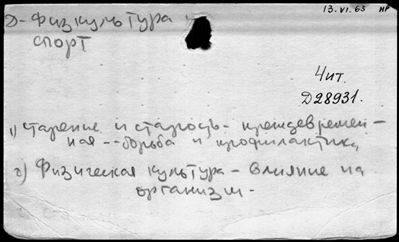 13.VI.65 НР
Д-Физкультура и
спорт
Чит.
Д28931.
1) Старение и старость - преждевремен-
ная - борьба и профилактика
2) Физическая культура - влияние на
организм -